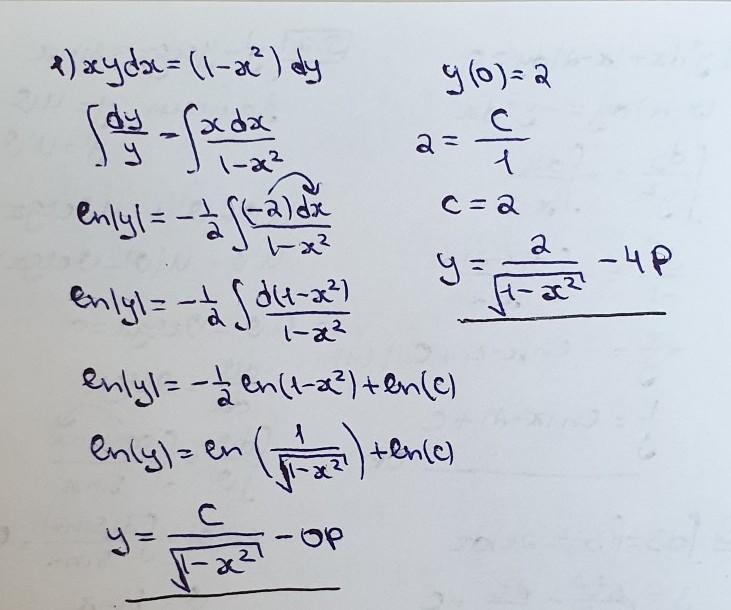 1) xydx = (1-x²) dy
∫ dy/y = ∫ x dx / 1-x²
ln|y| = -1/2 ∫ (-2) dx / 1-x²
ln|y| = -1/2 ∫ d(1-x²) / 1-x²
ln|y| = -1/2 ln(1-x²) + ln(c)
ln(y) = ln (1/√1-x²) + ln(c)
y = C/√1-x² - OP
y(0) = 2
2 = C/1
C = 2
y = 2/√1-x² - ЧР